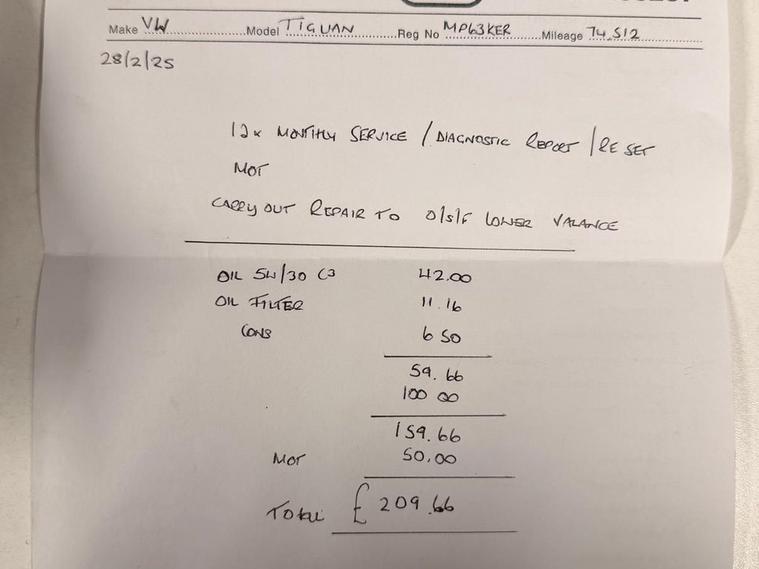 Make VW Model TIGUAN Reg No MP63KER Mileage 74,512
28/2/25
12x MONTHLY SERVICE / DIAGNOSTIC REPORT / RESET
MOT
CARRY OUT REPAIR TO O/S/F LOWER VALANCE
OIL 5W/30 C3 42.00
OIL FILTER 11.16
CONS 6 50
59.66
100 00
159.66
MOT 50.00
Total £209.66